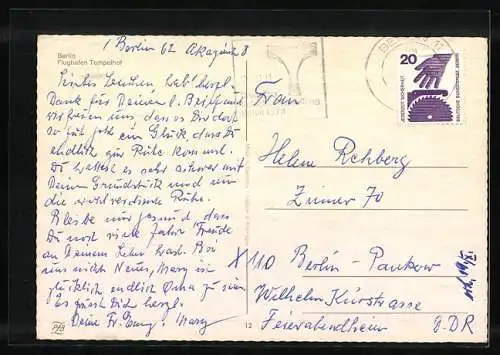 Berlin
Flughafen Tempelhof
1 Berlin 62 Akazien 8
Liebes Lenchen, hab herzl.
Dank für Deinen l. Brief und
wir freuen uns, dass es Dir dort
so gut geht ein Glück, dass Du
endlich zur Ruhe kommst.
Du hattest es sehr schwer mit
Deinem Grundstück und nun
die wohl verdiente Ruhe.
Bleibe nur gesund, dass
Du noch viele Jahre Freude
an Deinem Leben hast. Bei
uns nichts Neues, Mary ist
glücklich endlich Oma zu sein
Es grüsst Dich herzl.
Deine Fr. Mary
Frau
Helene Rehberg
Zimmer 70
X 110 Berlin-Pankow
Wilhelm Kürstrasse
Feierabendheim DDR
BERLIN 11
20
JEDERZEIT SICHERHEIT
DEUTSCHE BUNDESPOST BERLIN
12